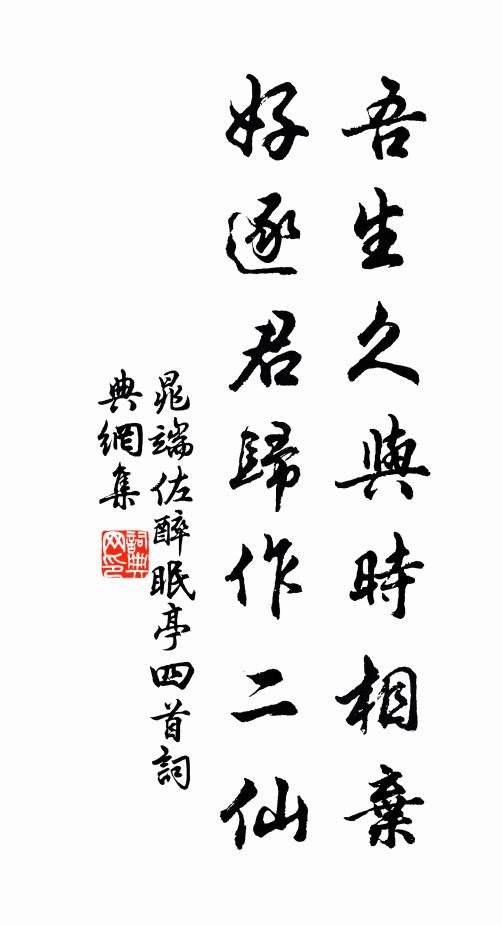 吾生久與時相棄
好逐君歸作二仙
晁端佐醉眠亭四首詞
典網集
詞典
网印